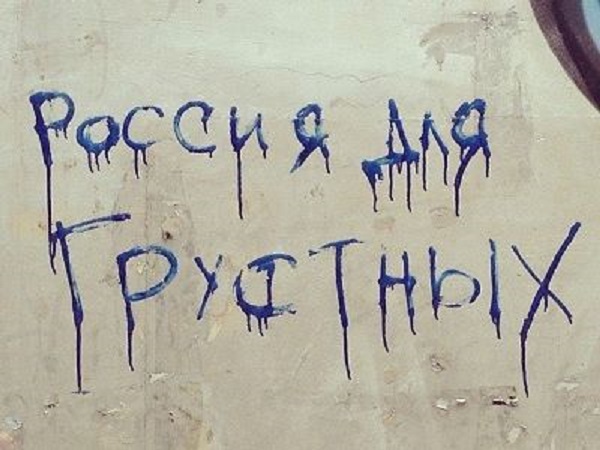 Россия для
Грустных